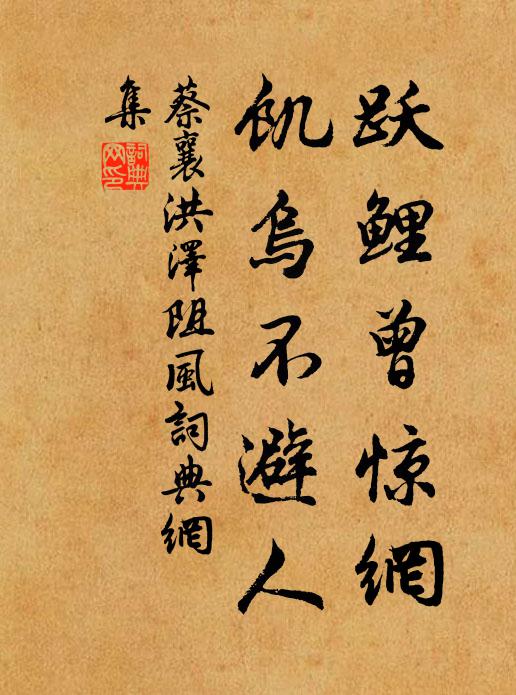 跃鲤曾惊網
飢乌不避人
蔡襄洪澤阻風詞典網
集
詞典网印